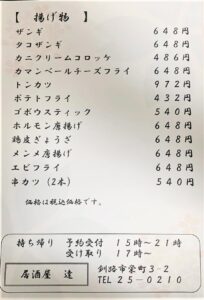 【 揚げ物 】
ザンギ 648円
タコザンギ 648円
カニクリームコロッケ 486円
カマンベールチーズフライ 648円
トンカツ 972円
ポテトフライ 432円
ゴボウスティック 540円
ホルモン唐揚げ 648円
鶏皮ぎょうぎ 648円
メンメ唐揚げ 648円
エビフライ 648円
串カツ (2本) 540円
価格は税込価格です。
持ち帰り 予約受付 15時~21時
受け取り 17時~
居酒屋 達
釧路市栄町3-2
TEL 25-0210